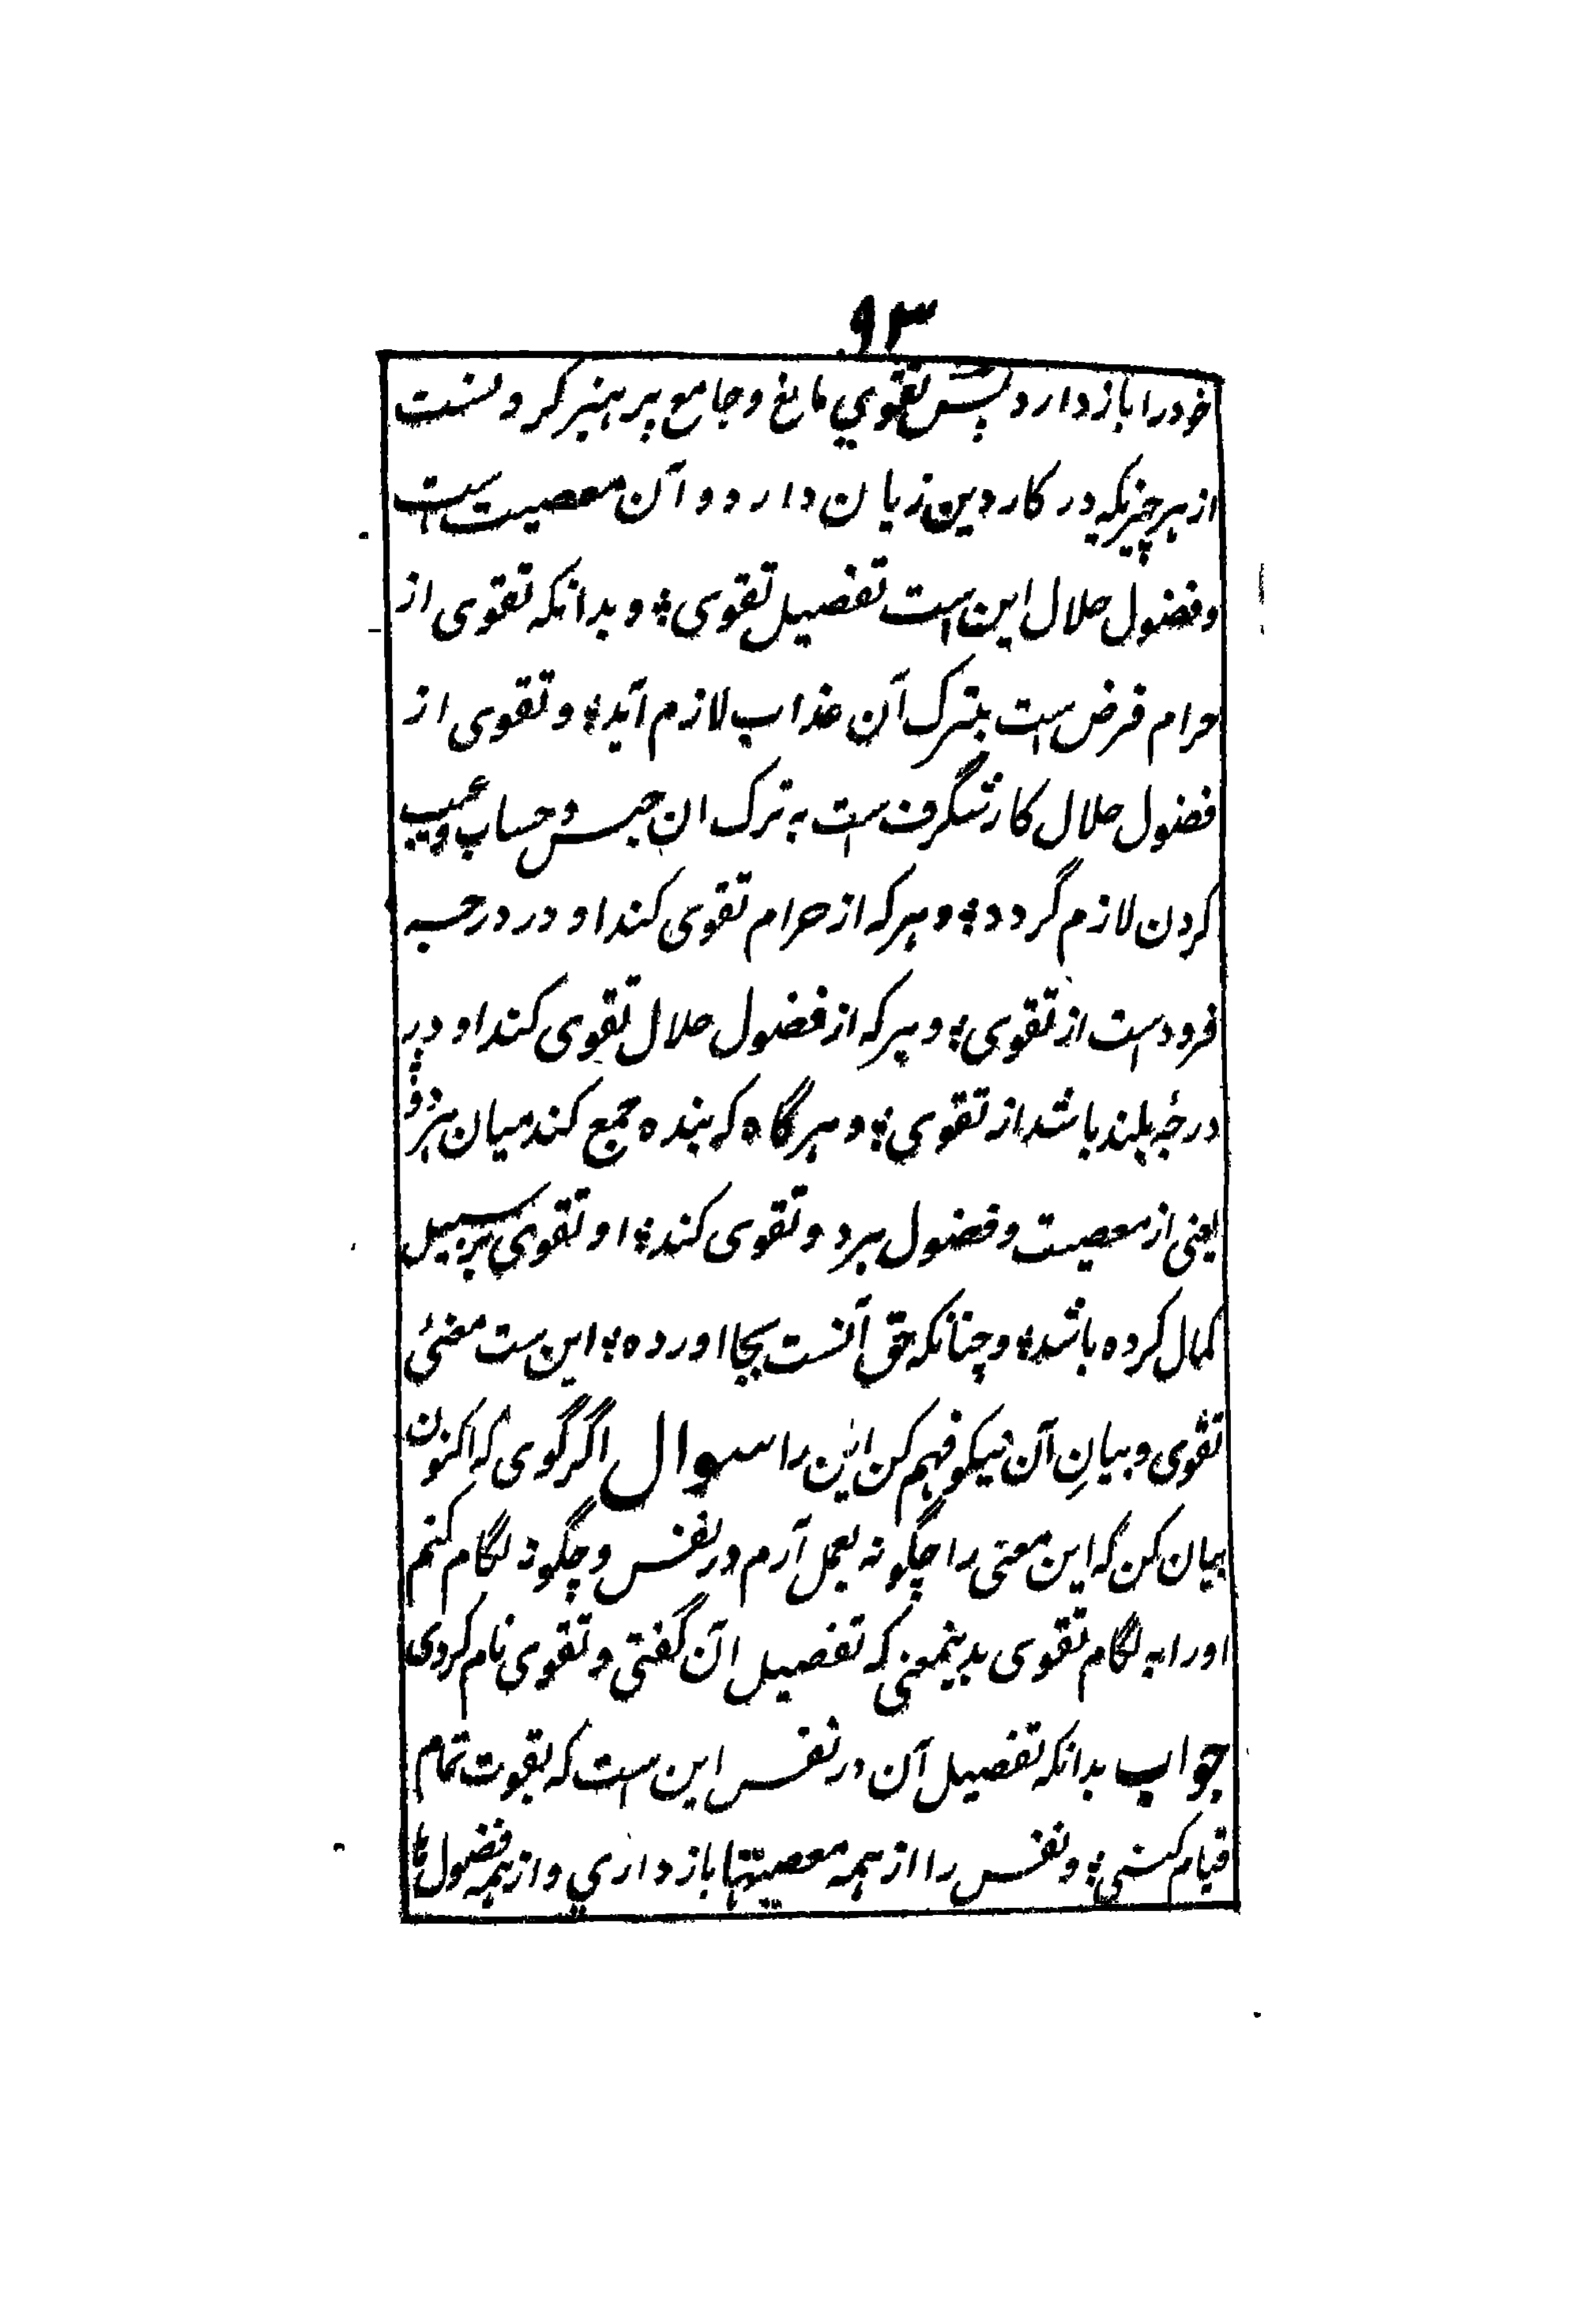 ۹۳
خودرا باز دارد پس تقوي مانع و جامع پرهیز کردنست
از هر چیزیکه در کار دین زیان دارد و آن معصیت است
و فضول حلال این است تفصیل تقوی؛ و بدانکه تقوی از
حرام فرض است بترک آن عذاب لازم آید؛ و تقوی از
فضول حلال کار شگرف ست به ترک ان حبس و حساب و عیب
کردن لازم گردد؛ و هر که از حرام تقوی کند او در درجه
فرود است از تقوی؛ و هر که از فضول حلال تقوی کند او در
درجهٔ بلند باشد از تقوي؛ و هر گاه که بنده جمع کند میان هر دو
یعنی از معصیت و فضول ببرد و تقوی کند؛ او تقوی بر سبیل
کمال کرده باشد؛ و چنانکه حق آنست بجا اورده؛ این ست معنیٔ
تقوی و بیانِ آن نیکو فهم کن این را سوال اگر گوی که اکنون
بیان کن که این معنی را چگونه بعمل آرم در نفس و چگونه لگام کنم
اورا به لگام تقوی بدینمعنی که تفصیل آن گفتی و تقوی نام کردی
جواب بدانکه تفصیل آن در نفس این است که بقوت تمام
قیام کنی؛ و نفس را از همه معصیتها باز داري و از همه فضول ها